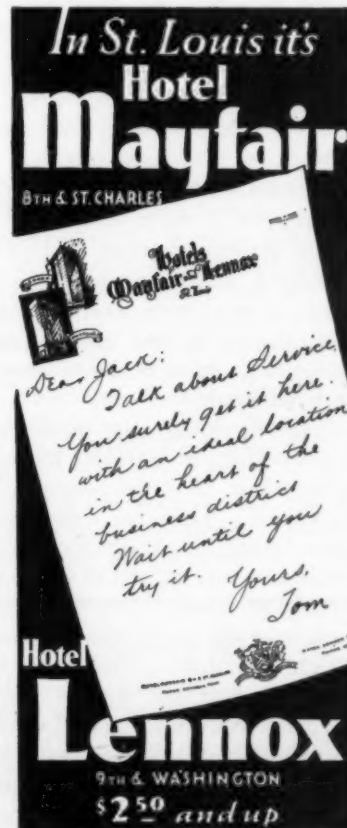 In St. Louis it's
Hotel
Mayfair
8TH & ST. CHARLES
Hotels
Mayfair and Lennox
St. Louis
Dear Jack:
Talk about Service
You surely get it here.
with an ideal location
in the heart of the
business district
Wait until you
try it. Yours,
Tom
Hotel
Lennox
9TH & WASHINGTON
$2.50 and up